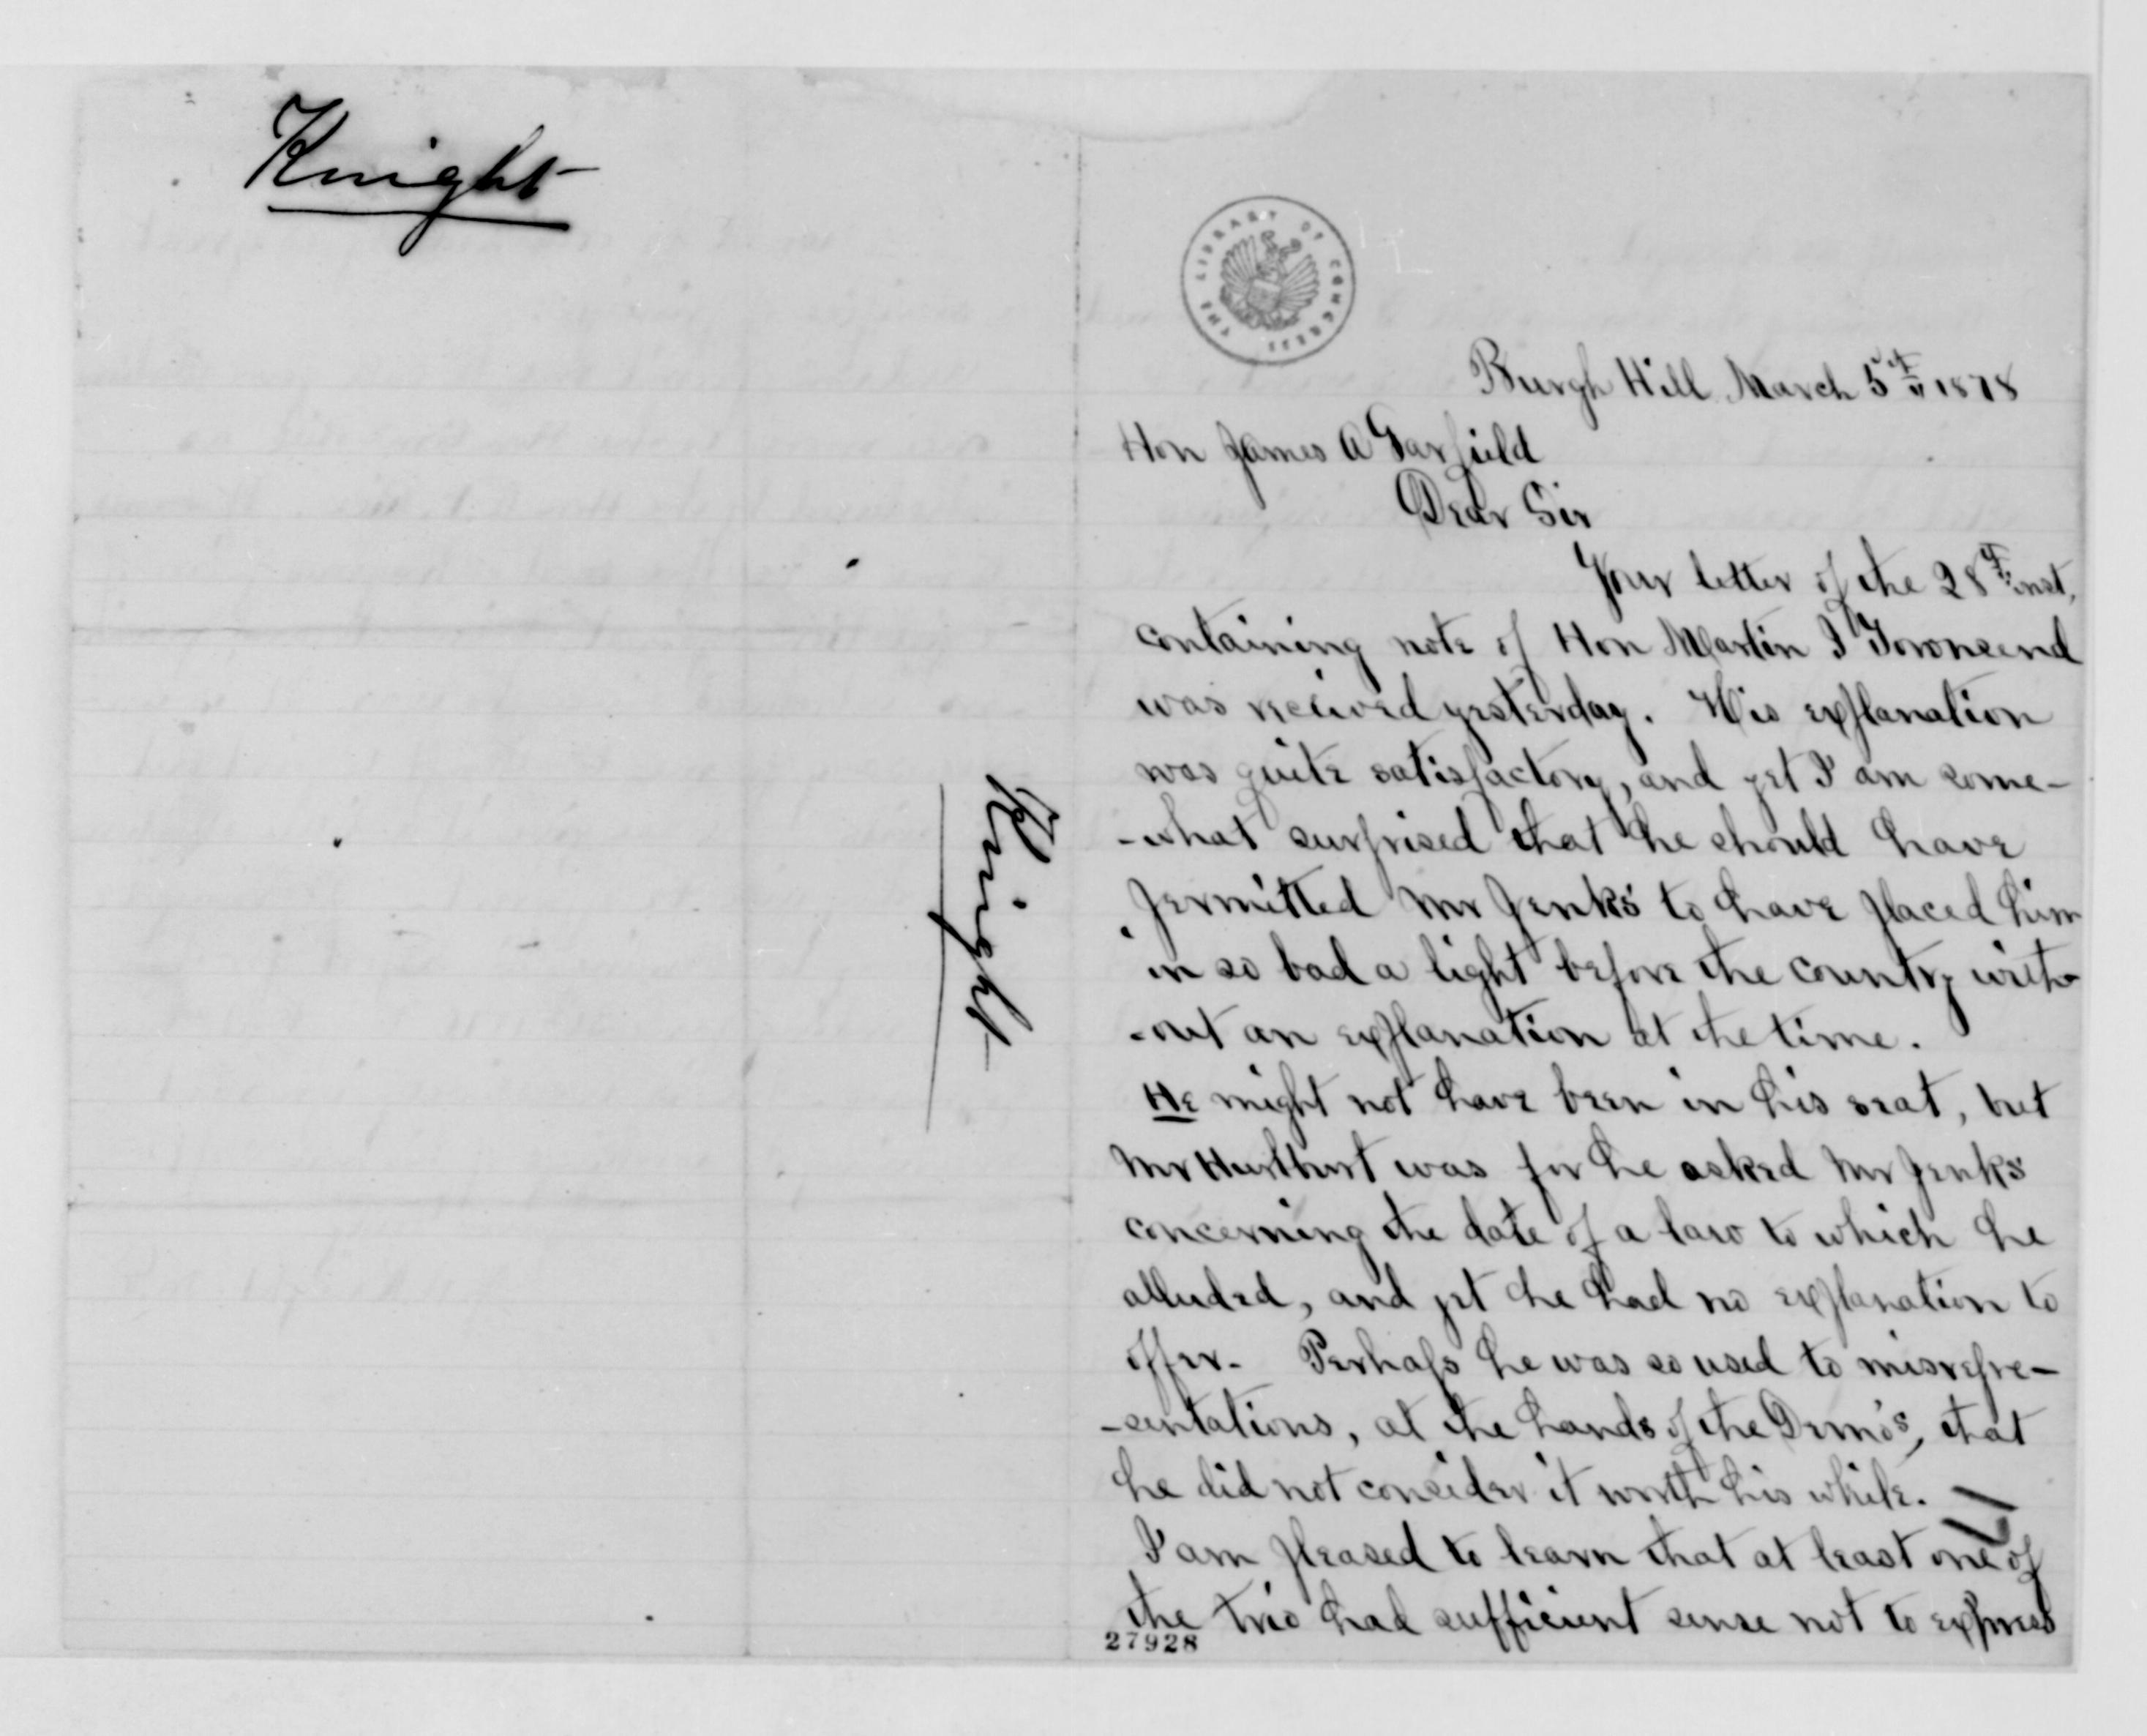 Knight
Knight
THE LIBRARY OF CONGRESS
Burgh Hill March 5th 1878
Hon James A Garfield
Dear Sir
Your letter of the 28th inst,
containing note of Hon Martin I Townsend
was recieved yesterday. His explanation
was quite satisfactory, and yet I am some-
-what surprised that he should have
permitted Mr Jenks to have placed him
in so bad a light before the country with-
-out an explanation at the time.
He might not have been in his seat, but
Mr Hurlburt was for he asked Mr Jenks
concerning the date of a law to which he
alluded, and yet he had no explanation to
offer. Perhaps he was so used to misrepre-
-sentations, at the hands of the Demo's, that
he did not consider it worth his while.
I am pleased to learn that at least one of
the trio had sufficient sense not to express
27928